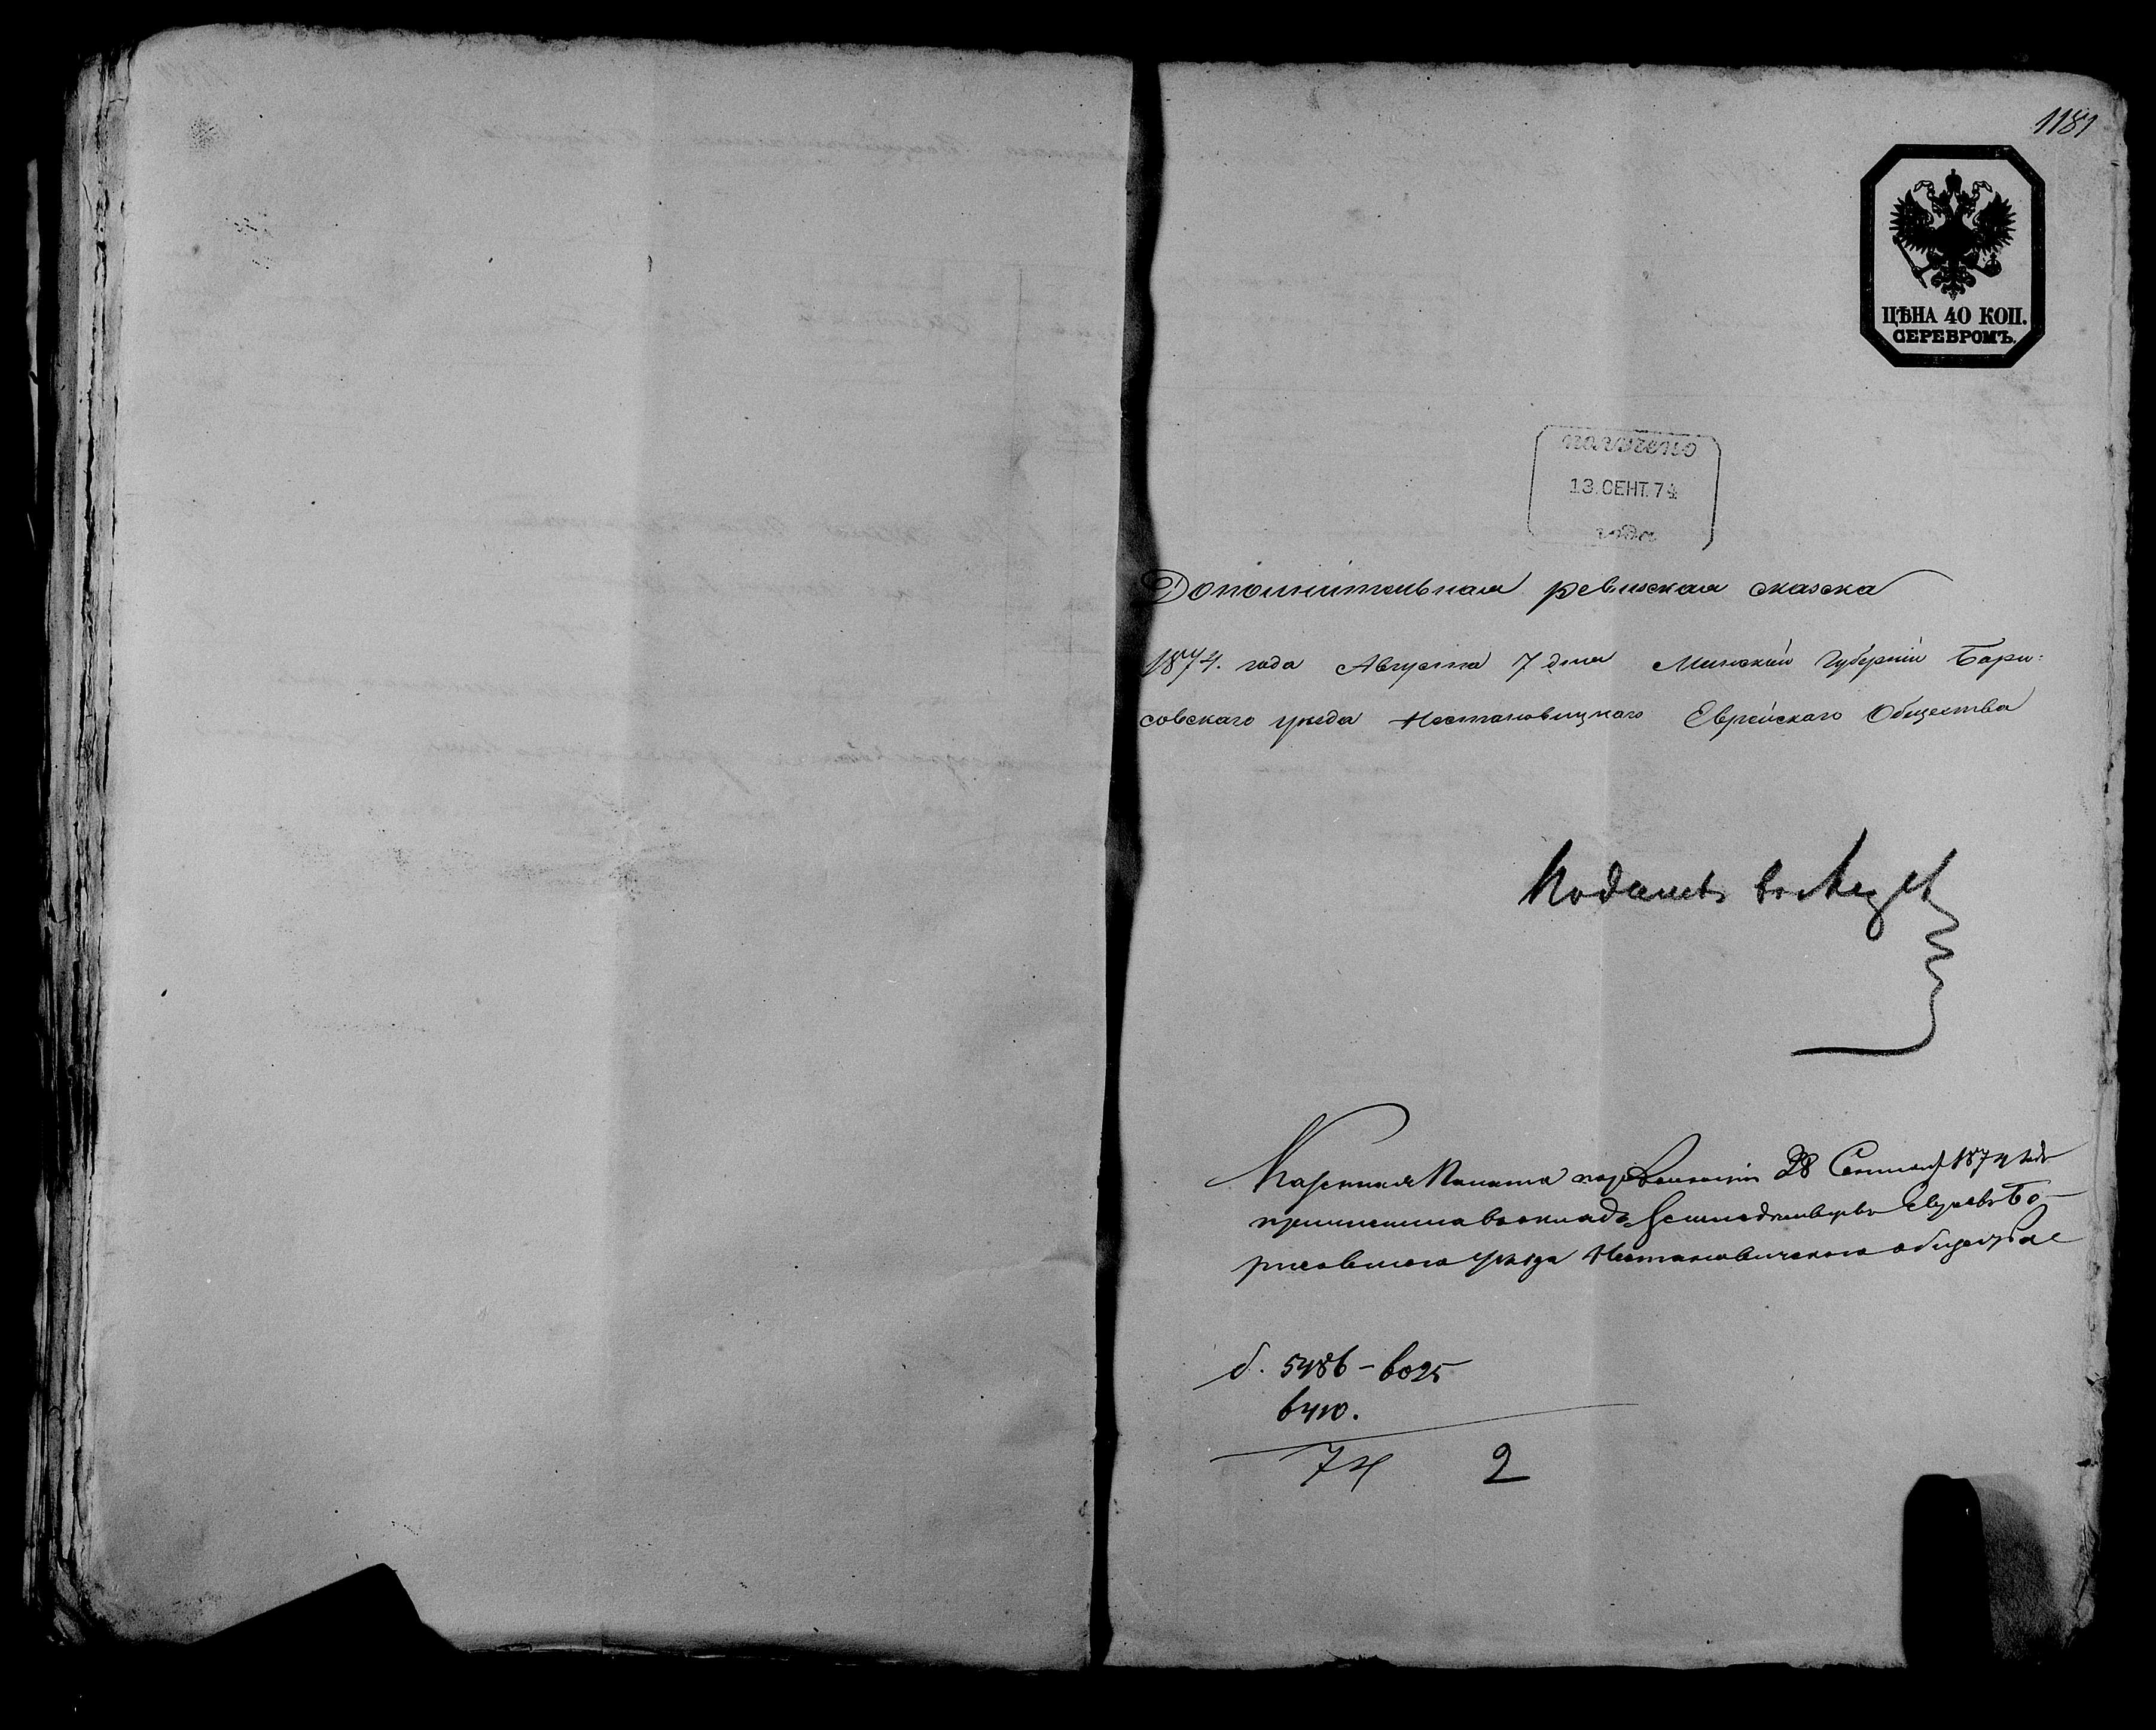 1181
ЦѢНА 40 КОП.
СЕРЕБРОМЪ.
ПОЛУЧЕНО
13. СЕНТ. 74
года
Дополнительная ревизская сказка
1874. года Августа 7 дня Минской Губерніи Бори-
совскаго уѣзда Нестановицкаго Еврейскаго Общества
Подалъ
Казенная Палата 28 1874 года
причислила въ окладъ Евреевъ Бо-
рисовскаго уѣзда Нестановичскаго общества
б. 5486 – 6025
6410.
74 2